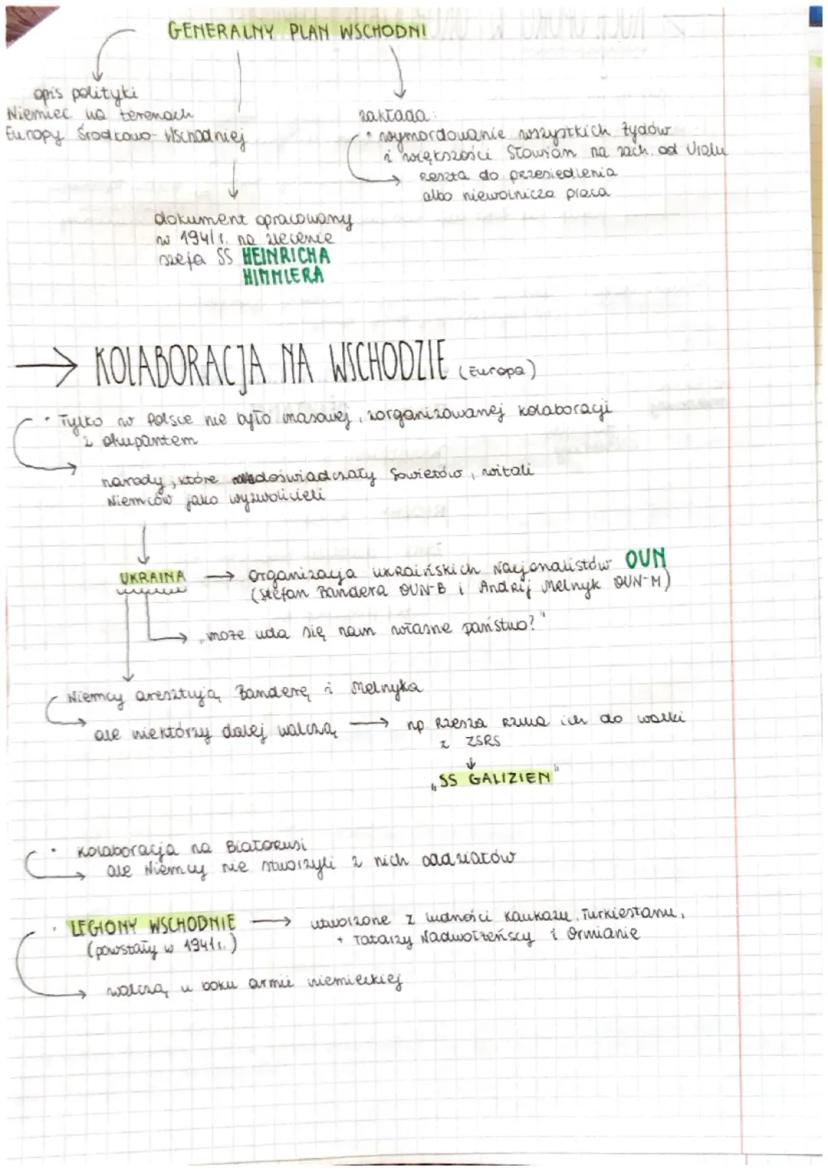 GENERALNY PLAN WSCHODNI
opis polityki
Niemiec na terenach
Europy Środkowo-Wschodniej
zakłada:
• wymordowanie wszystkich żydów
i większości Słowian na zach. od Uralu
reszta do przesiedlenia
albo niewolnicza praca
dokument opracowany
w 1941r. na zlecenie
szefa SS HEINRICHA
HIMMLERA
→ KOLABORACJA NA WSCHODZIE (Europa)
• Tylko w Polsce nie było masowej, zorganizowanej kolaboracji
z okupantem
narody, które doświadczały Sowietów, witali
Niemców jako wyzwolicieli
UKRAINA → Organizacja Ukraińskich Nacjonalistów OUN
(Stefan Bandera OUN-B i Andrij Melnyk OUN-M)
"może uda się nam własne państwo?"
Niemcy aresztują Banderę i Melnyka
ale niektórzy dalej walczą → np Rzesza rzuca ich do walki
z ZSRS
"SS GALIZIEN"
• Kolaboracja na Białorusi
ale Niemcy nie stworzyli z nich oddziałów
• LEGIONY WSCHODNIE → utworzone z ludności Kaukazu, Turkiestanu,
(powstały w 1941r.)
+ Tatarzy Nadwołżeńscy i Ormianie
walczą u boku armii niemieckiej